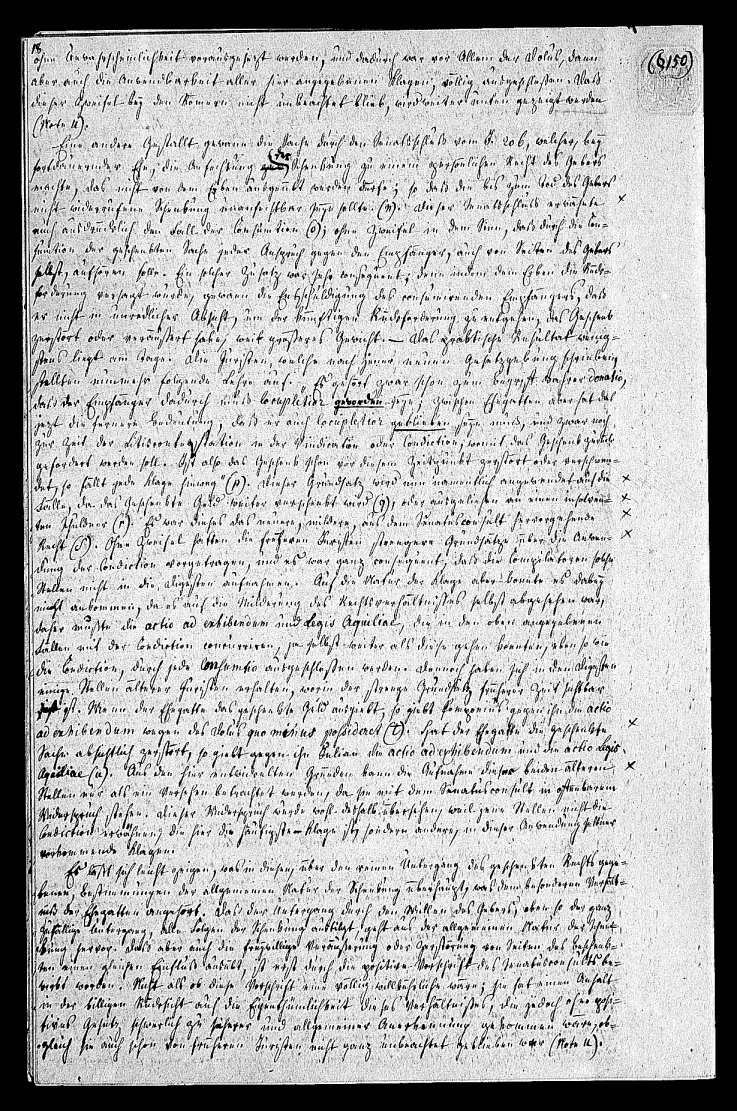 18.
(§ 150)
ohne Unwahrscheinlichkeit vorausgesetzt werden, und dadurch war vor Allem der Dolus, dann
aber auch die Anwendbarkeit aller hier angegebenen Klagen, völlig ausgeschlossen. Daß
dieser Zweifel bey den Römern nicht unbeachtet blieb, wird weiter unten gezeigt werden
(Note u).
Eine andere Gestalt gewann die Sache durch den Senatsschluß vom J. 206, welcher, bey
fortdauernder Ehe, die Anfechtung der Schenkung zu einem persönlichen Recht des Gebers
machte, das nicht von dem Erben ausgeübt werden dürfe; so daß die bis zum Tod des Gebers
nicht widerrufene Schenkung unanfechtbar seyn sollte (n). Dieser Senatsschluß erwähnte
auch ausdrücklich den Fall der Consumtion (o); ohne Zweifel in dem Sinn, daß durch die Con-
sumtion der geschenkten Sache jeder Anspruch gegen den Empfänger, auch von Seiten des Gebers
selbst, aufhören solle. Ein solcher Zusatz war sehr consequent; denn indem dem Erben die Rück-
forderung versagt wurde, gewann die Entschuldigung des consumirenden Empfängers, daß
er nicht in unredlicher Absicht, um der künftigen Rückforderung zu entgehen, das Geschenk
zerstört oder veräußert habe, weit größeres Gewicht. — Das praktische Resultat wenig-
stens liegt am Tage. Die Juristen, welche nach jener neuen Gesetzgebung schrieben,
stellten nunmehr folgende Lehre auf. Es gehört zwar schon zum Begriff wahrer donatio,
daß der Empfänger dadurch muß locupletior geworden seyn; zwischen Ehegatten aber hat das
jetzt die fernere Bedeutung, daß er auch locupletior geblieben seyn muß, und zwar noch
zur Zeit der Litiscontestation in der Vindication oder Condiction, womit das Geschenk zurück-
gefordert werden soll. Ist also das Geschenk schon vor diesem Zeitpunkt zerstört oder verschwen-
det, so fällt jede Klage hinweg (p). Dieser Grundsatz wird nun namentlich angewendet auf die
Fälle, da das geschenkte Geld weiter verschenkt wird (q), oder ausgeliehen an einen insolven-
ten Schuldner (r). Es war dieses das neuere, mildere, aus dem Senatusconsult hervorgehende
Recht (s). Ohne Zweifel hatten die früheren Juristen strengere Grundsätze über die Anwen-
dung der Condiction vorgetragen, und es war ganz consequent, daß die Compilatoren solche
Stellen nicht in die Digesten aufnahmen. Auf die Natur der Klage aber konnte es dabey
nicht ankommen, da es auf die Milderung des Rechtsverhältnisses selbst abgesehen war;
daher mußte die actio ad exhibendum und Legis Aquiliae, die in den oben angegebenen
Fällen mit der Condiction concurriren, ja selbst weiter als diese gehen konnten, eben so wie
die Condiction, durch jede Consumtio ausgeschlossen werden. Dennoch haben sich in den Digesten
einige Stellen älterer Juristen erhalten, worin der strenge Grundsatz früherer Zeit sichtbar
ist. Wenn der Ehegatte das geschenkte Geld ausgiebt, so giebt Pomponius gegen ihn die actio
ad exhibendum wegen des Dolus quo minus possideret (t). Hat der Ehegatte die geschenkte
Sache absichtlich zerstört, so giebt gegen ihn Julian die actio ad exhibendum und die actio Legis
Aquiliae (u). Aus den hier entwickelten Gründen kann die Aufnahme dieser beiden älteren
Stellen nur als ein Versehen betrachtet werden, da sie mit dem Senatusconsult in offenbarem
Widerspruch stehen. Dieser Widerspruch wurde wohl deshalb übersehen, weil jene Stellen nicht die
Condiction erwähnen, die hier die häufigste Klage ist, sondern andere, in dieser Anwendung seltner
vorkommende Klagen.
Es läßt sich leicht zeigen, was in diesen, über den reinen Untergang des geschenkten Rechts gege-
benen, Bestimmungen der allgemeinen Natur der Schenkung überhaupt, was dem besonderen Verhält-
niß der Ehegatten angehört. Daß der Untergang durch den Willen des Gebers, eben so der ganz
zufällige Untergang, alle Folgen der Schenkung austilgt, geht aus der allgemeinen Natur der Schen-
kung hervor. Daß aber auch die freywillige Veräußerung oder Zerstörung von Seiten des Beschenk-
ten einen gleichen Einfluß ausübt, ist erst durch die positive Vorschrift des Senatusconsults be-
wirkt worden. Nicht als ob diese Vorschrift eine völlig willkührliche wäre; sie hat einen Anhalt
in der billigen Rücksicht auf die Eigenthümlichkeit dieses Verhältnisses, die jedoch ohne posi-
tives Gesetz, schwerlich zu sicherer und allgemeiner Anerkennung gekommen wäre, ob-
gleich sie auch schon von früheren Juristen nicht ganz unbeachtet geblieben war (Note u).